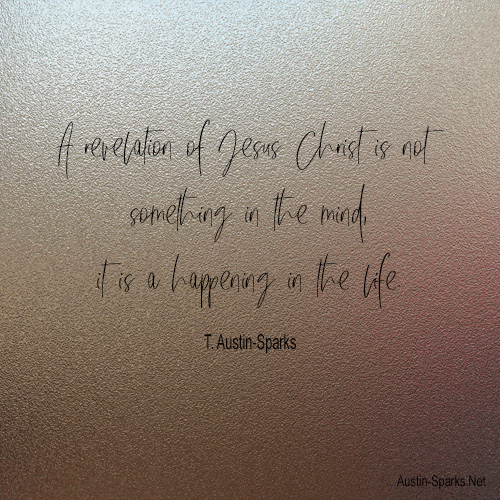 A revelation of Jesus Christ is not
something in the mind,
it is a happening in the life
T. Austin-Sparks
Austin-Sparks.Net